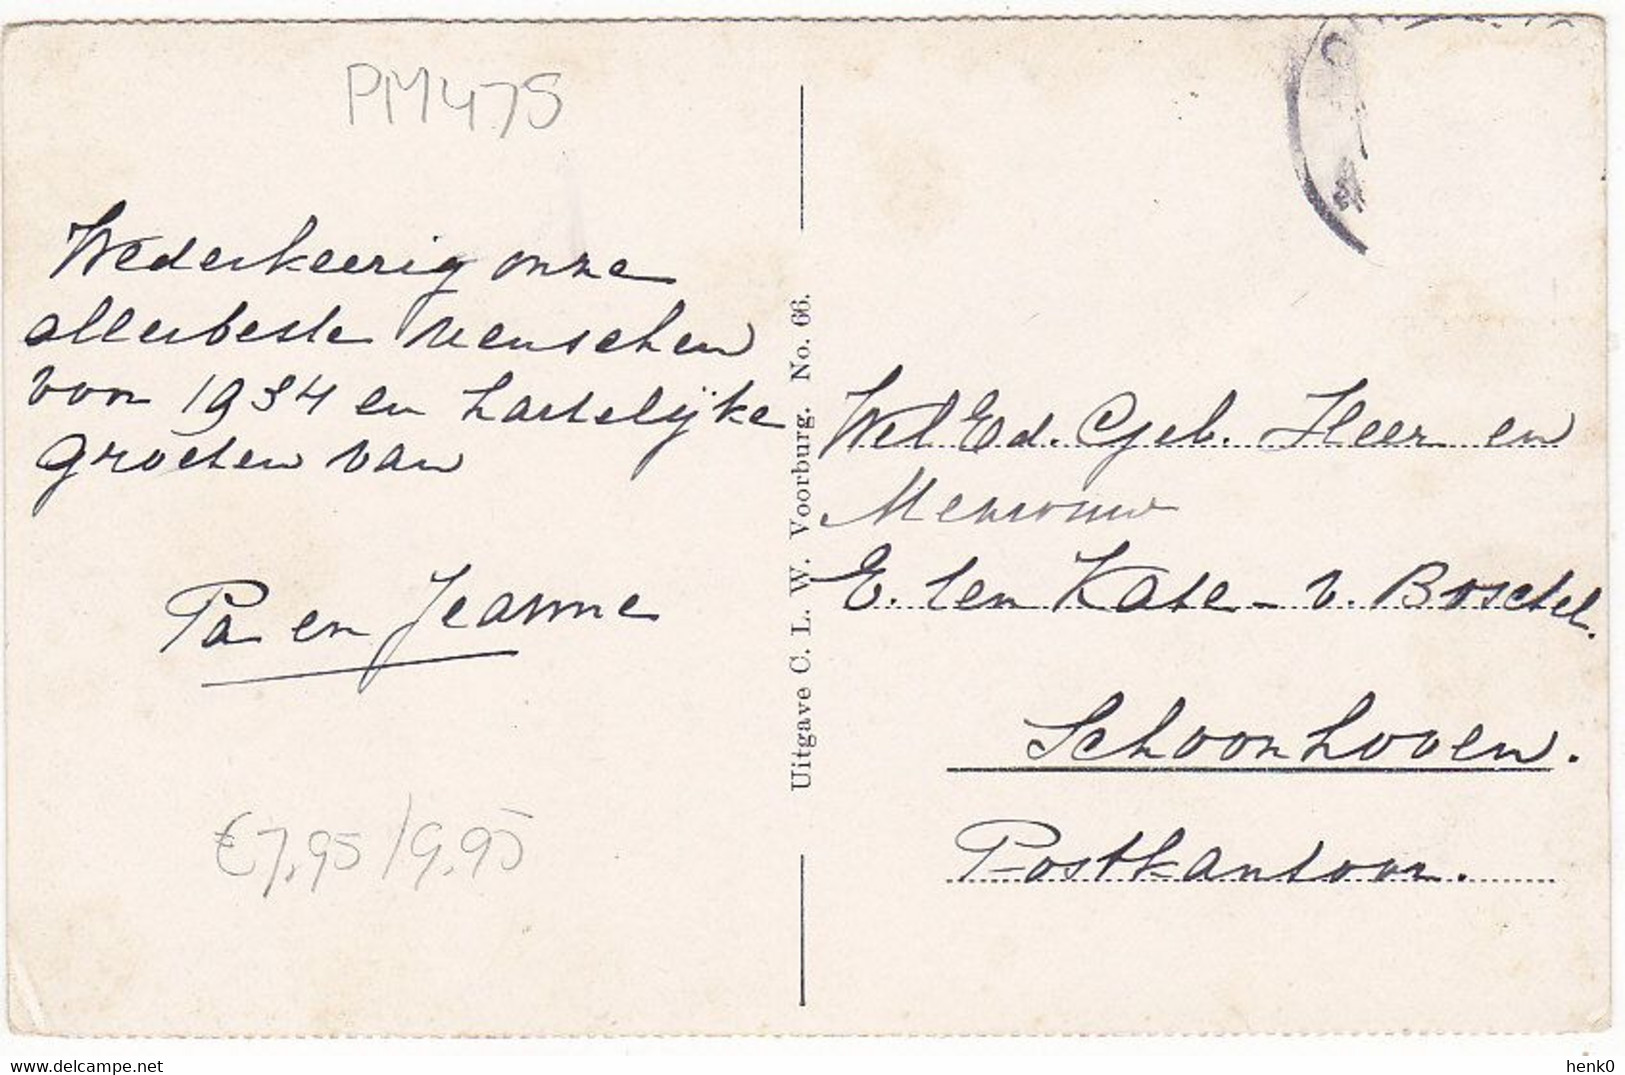 PM475
Wederkeerig onze
allerbeste wenschen
voor 1934 en hartelijke
groeten van
Pa en Jeanne
€7,95/9,95
Uitgave C. L. W. Voorburg. No. 66.
Wel Ed. Geb. Heer en
Mevrouw
E. ten Kate - v. Boxtel.
Schoonhoven.
Postkantoor.
henk0